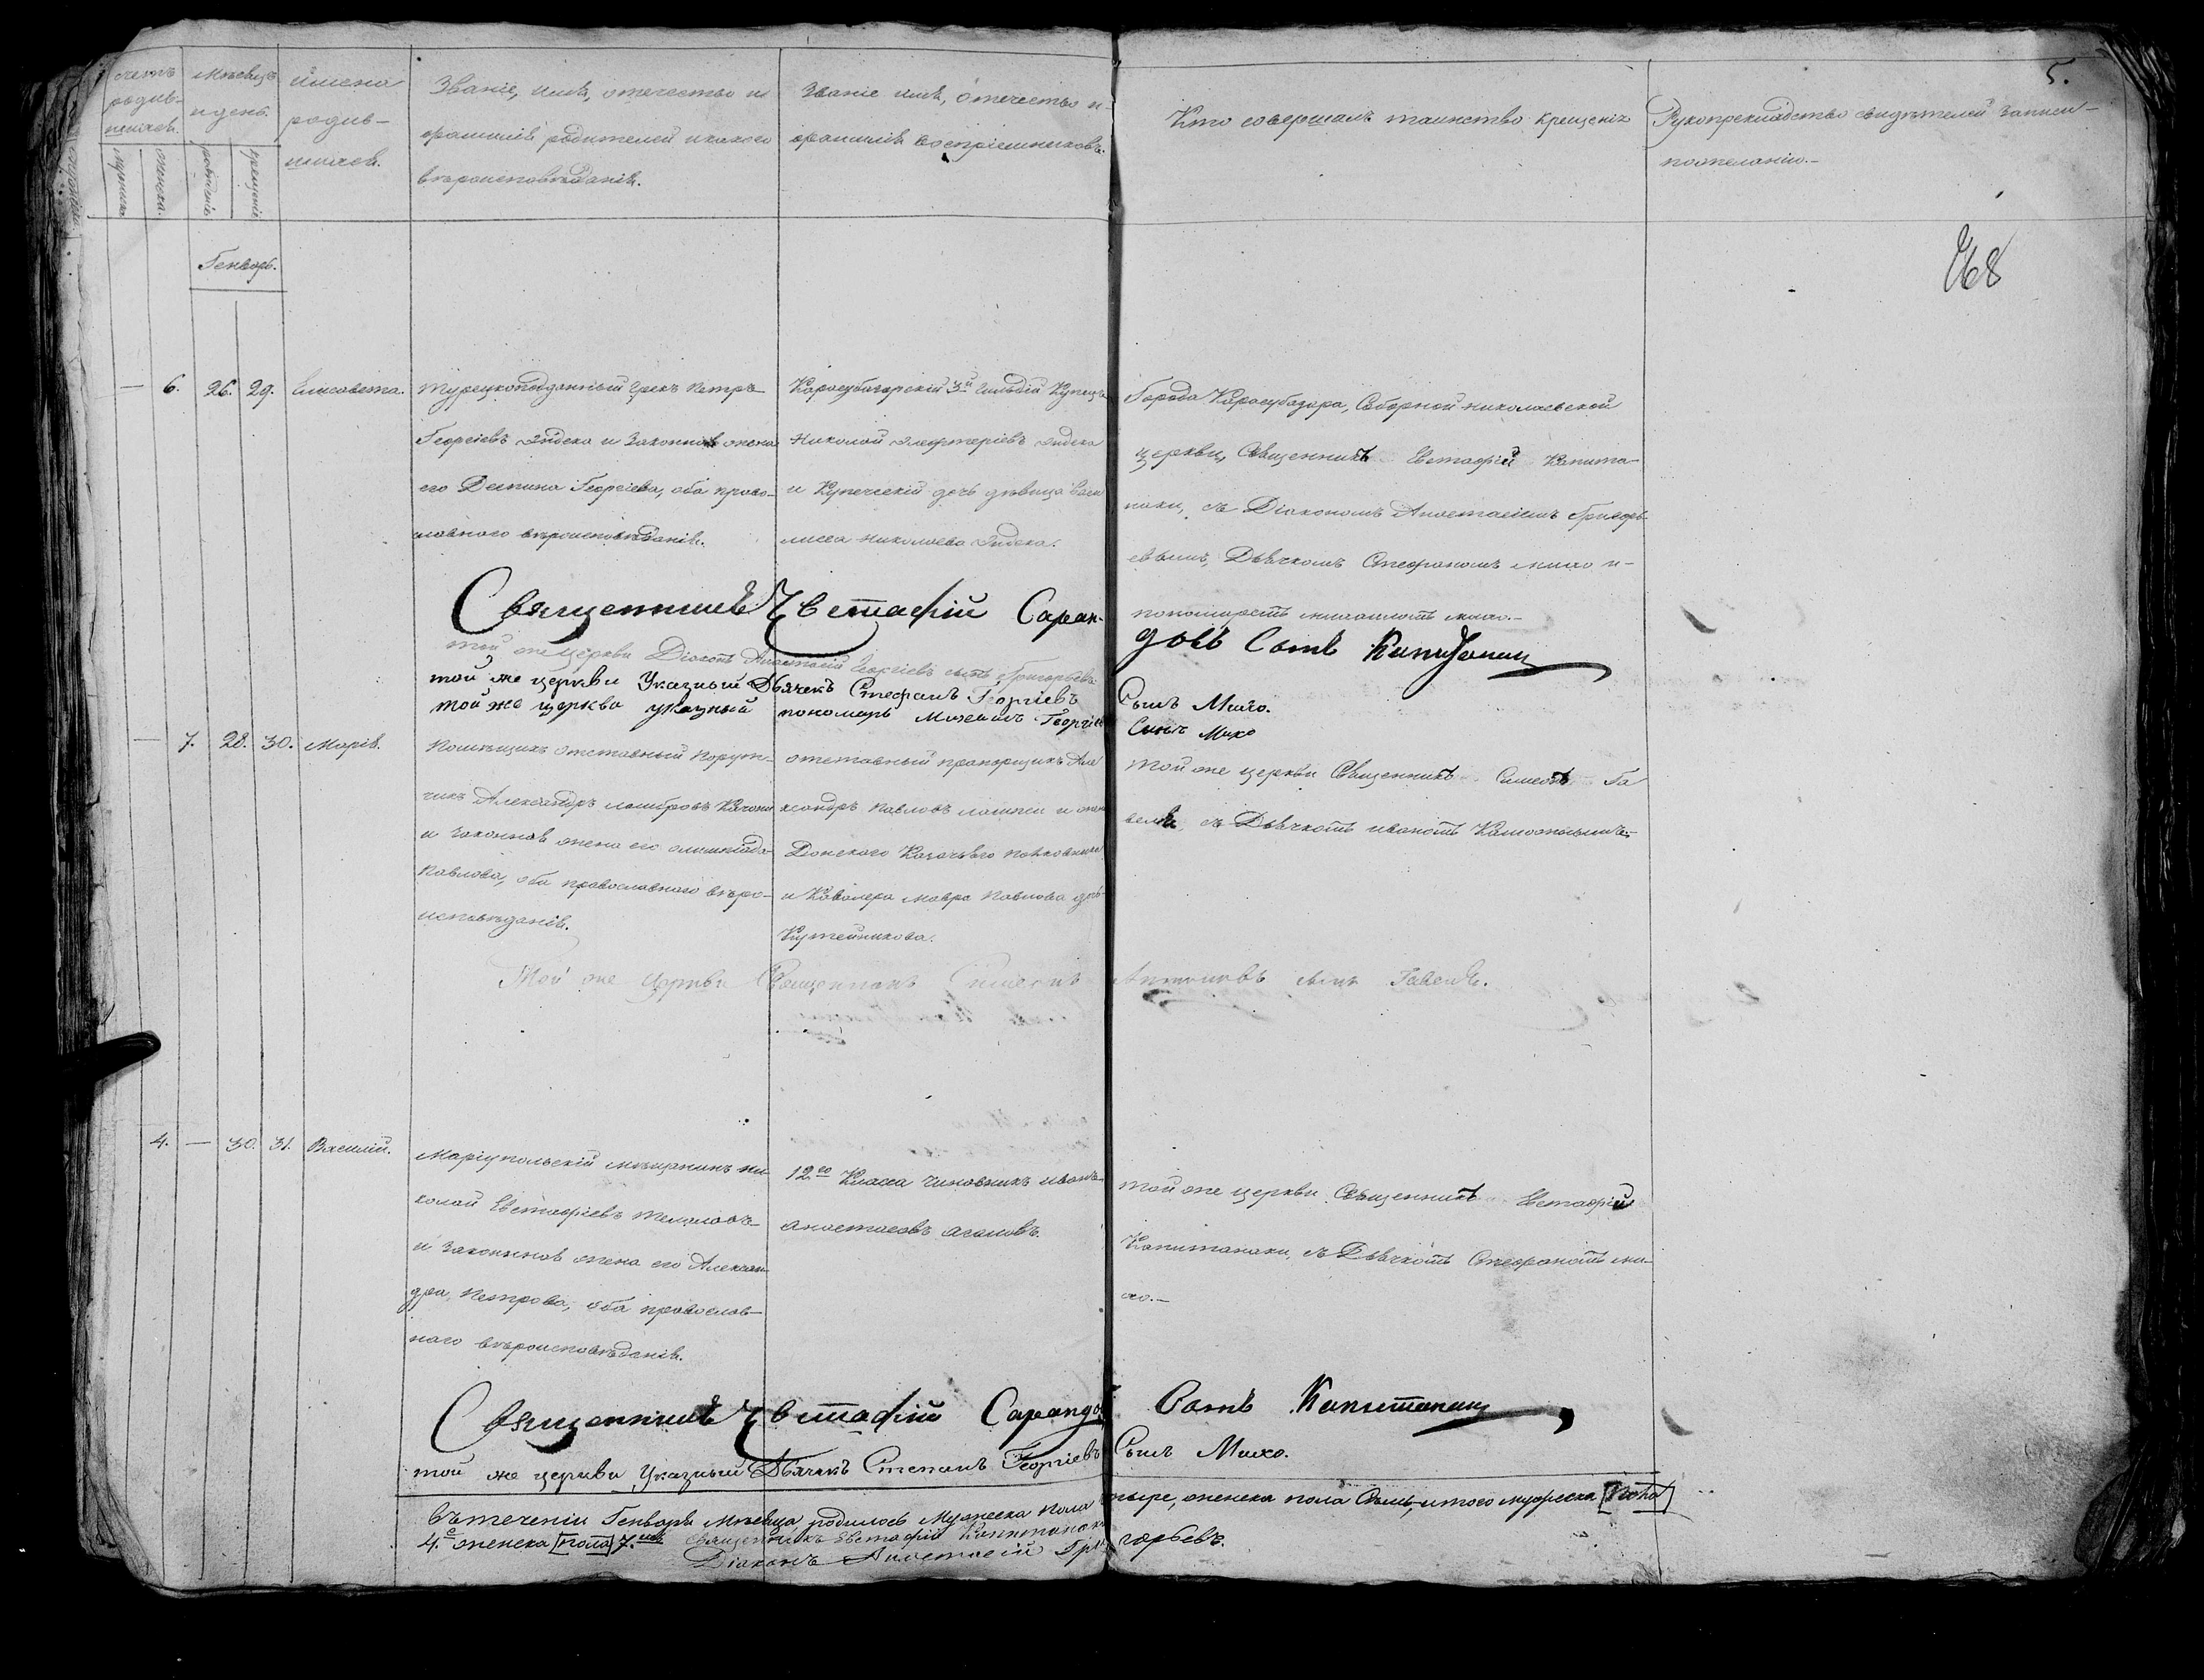 5.
счетъ родив-шихся.
мужска.
женска.
Мѣсяцъ и день.
рожденія
крещенія
Имена родив-шихся.
Званіе, имя, отечество и
фамилія родителей и какого
вѣроисповѣданія.
Званіе имя, отечество и
фамилія воспріемниковъ.
Кто совершалъ таинство крещенія
Рукоприкладство свидѣтелей записи
пожеланію.
768
Генварь.
— 6. 26. 29. Елисавета.
Турецкоподданный Грекъ Петръ
Георгіевъ Индека и законная жена
его Деспина Георгіева, оба право-
славного вѣроисповѣданія.
Карасубазарскій 3й Гильдіи Купецъ
Николай Элефтеріевъ Индека
и Купеческій дочь дѣвица Васи
лисса Николаева Индека.
Города Карасубазара, Соборной Николаевской
церкви, Священникъ Евстафій Капита-
наки, съ Діакономъ Анастасіемъ Григорь-
евымъ, Дьячкомъ Стефаномъ михо и-
пономаремъ михаиломъ михо.-
Священникъ Евстафій Саран-
довъ Сынъ Капитанаки
той же церкви Діаконъ Анастасій Георгіевъ сынъ Григорьевъ
той же церкви Указный Дьячекъ Стефанъ Георгіевъ Сынъ Михо.
той же церкви указный пономарь Михаилъ Георгіев Сынъ Михо
— 7. 28. 30. Марія.
Помѣщикъ отставный Порут-
чикъ Александръ Ламбровъ Качони
и законная жена его олимпіада
Павлова, оба православнаго вѣро-
исповѣданія.
отставный прапорщикъ Але
ксандръ Павловъ Лампси и жена
Донскаго Казачьяго полковника
и Кавалера Мавра Павлова дочь
Кутейникова.
той же церкви Священникъ Симеонъ Га
веля, съ Дьячкомъ иваномъ
Той же Церкви Священникъ Симеонъ Антоновъ сынъ Гавеля.
4. — 30. 31. Василій.
Маріупольскій мѣщанинъ Ни
колай Евстафіевъ
и законная жена его Алексан-
дра Петрова, оба православ-
наго вѣроисповѣданія.
12го Класса чиновникъ иванъ
Анастасовъ Асановъ.
той же церкви Священникъ Евстафій
Капитанаки, съ Дьячкомъ Стефаномъ ми-
хо.-
Священникъ Евстафій Сарандо Сынъ Капитанаки
той же церкви Указный Дьячекъ Степанъ Георгіевъ Сынъ Михо.
Въ теченіи Генваря мѣсяца родилось Мужеска пола четыре, женска пола Семь, итого мужеска [пола]
4.е женска [пола] 7.мь Священникъ Евстафій Капитанаки
Діаконъ Анастасій Григорьевъ.